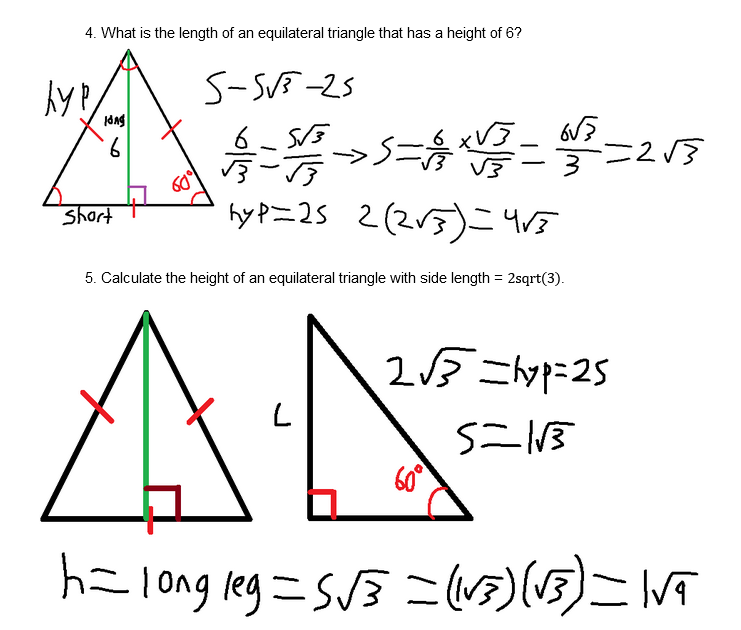 4. What is the length of an equilateral triangle that has a height of 6?
hyp
S-S√3-2S
long
6
6/√3 = S√3/√3 → S = 6/√3 × √3/√3 = 6√3/3 = 2√3
60°
short
hyp=2S 2(2√3)=4√3
5. Calculate the height of an equilateral triangle with side length = 2sqrt(3).
2√3 = hyp=2S
L
S=1√3
60°
h = long leg = S√3 = (1√3)(√3) = 1√9